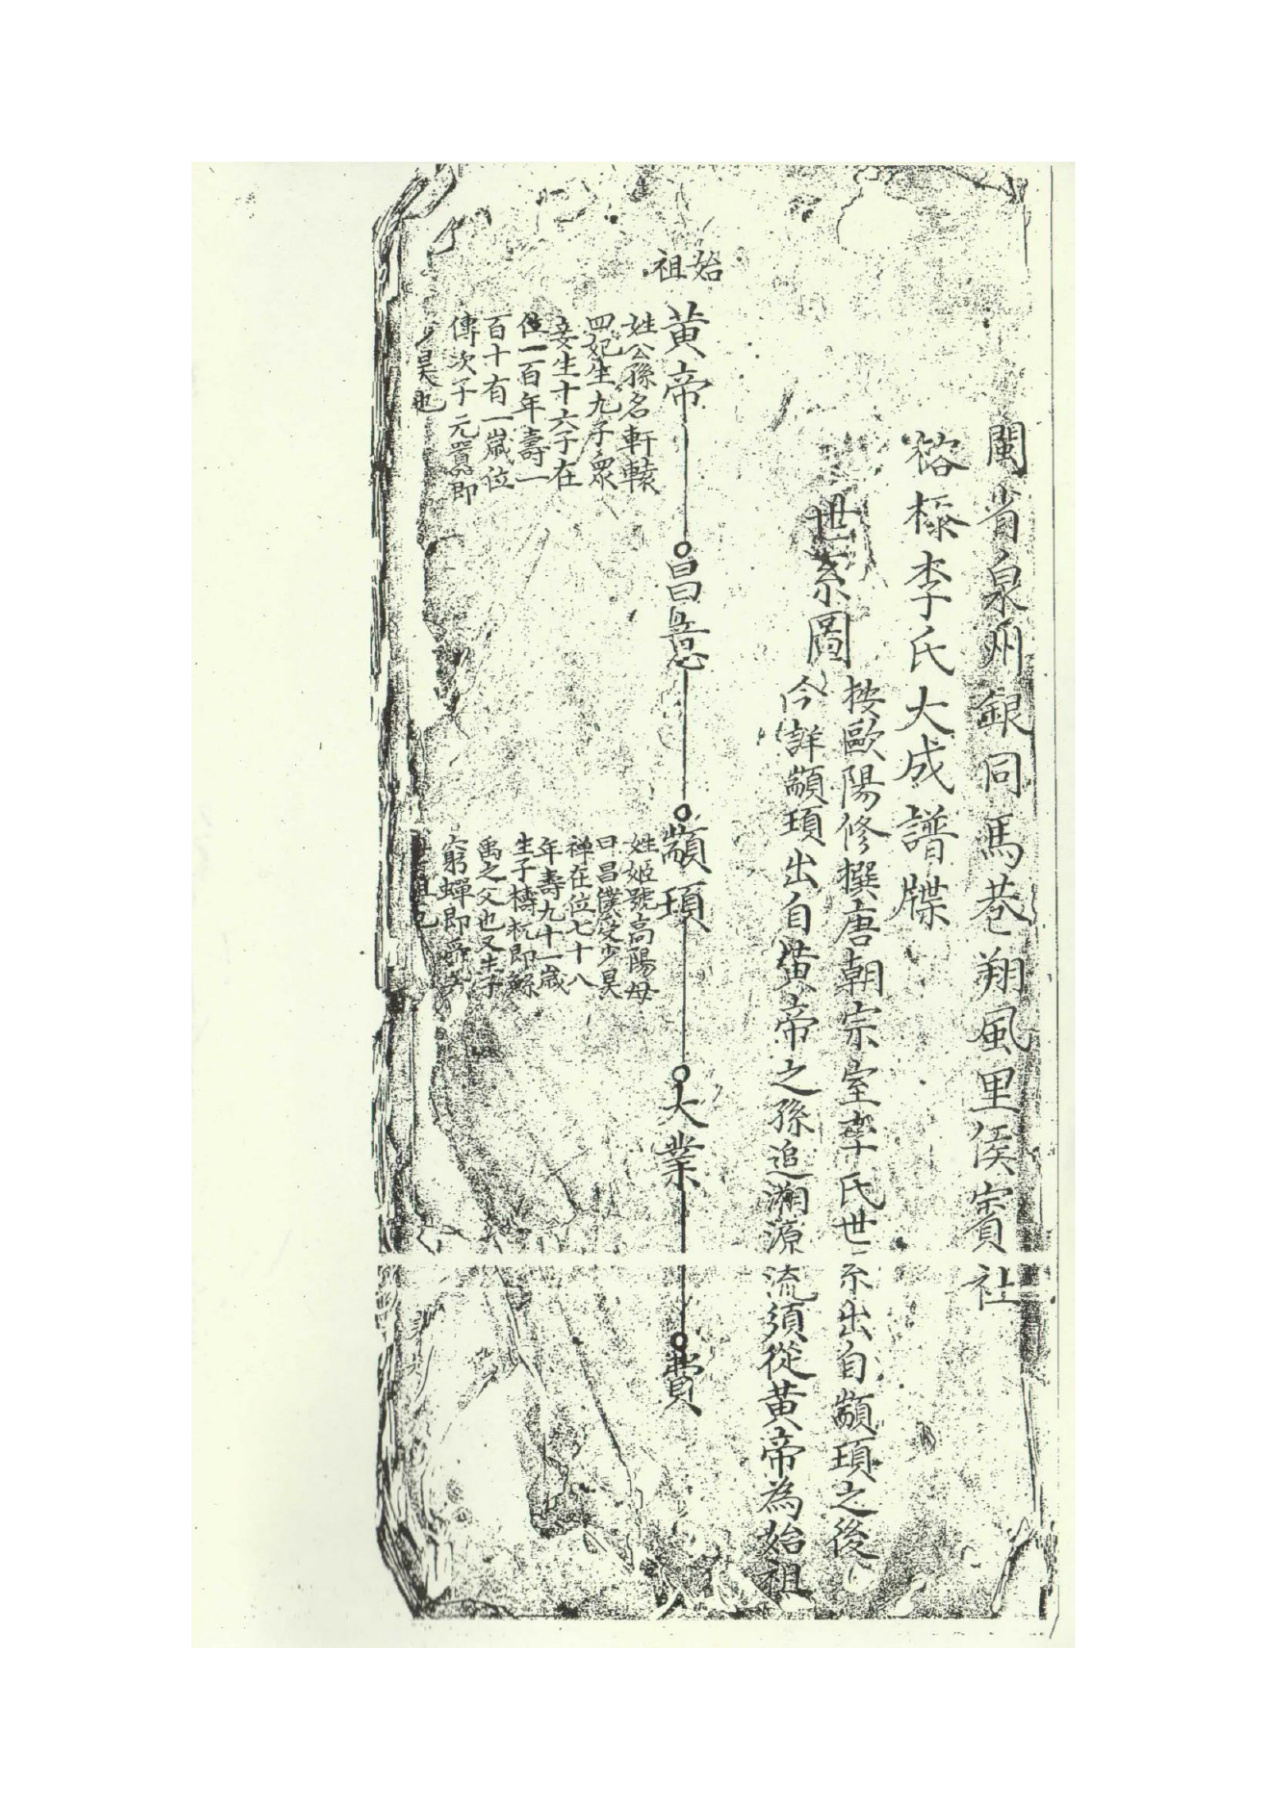 閩省泉州銀同馬巷翔風里侯賓社
李氏大成譜牒
世系圖
按歐陽修撰唐朝宗室李氏世系出自顓頊之後
今詳顓頊出自黃帝之孫追溯源流須從黃帝為始祖
始祖
黃帝
姓公孫名軒轅
四妃生九子眾
妾生十六子在
位一百年壽一
百十有一歲位
傳次子元囂即
少昊也
昌意
顓頊
姓姬號高陽母
曰昌僕受少昊
禅在位七十八
年壽九十一歲
生子檮杌即鯀
禹之父也又生子
窮蟬即
祖也
大業
費